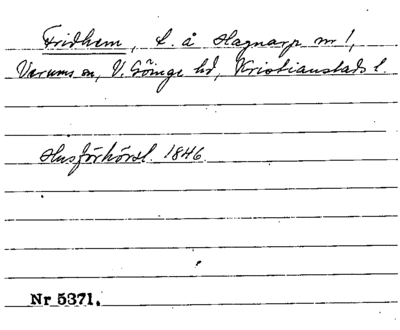 Fridhem, l. å Hagnarp nr 1,
Verums sn, V. Göinge hd, Kristianstads l.
Husförhörsl. 1846.
Nr 5371.